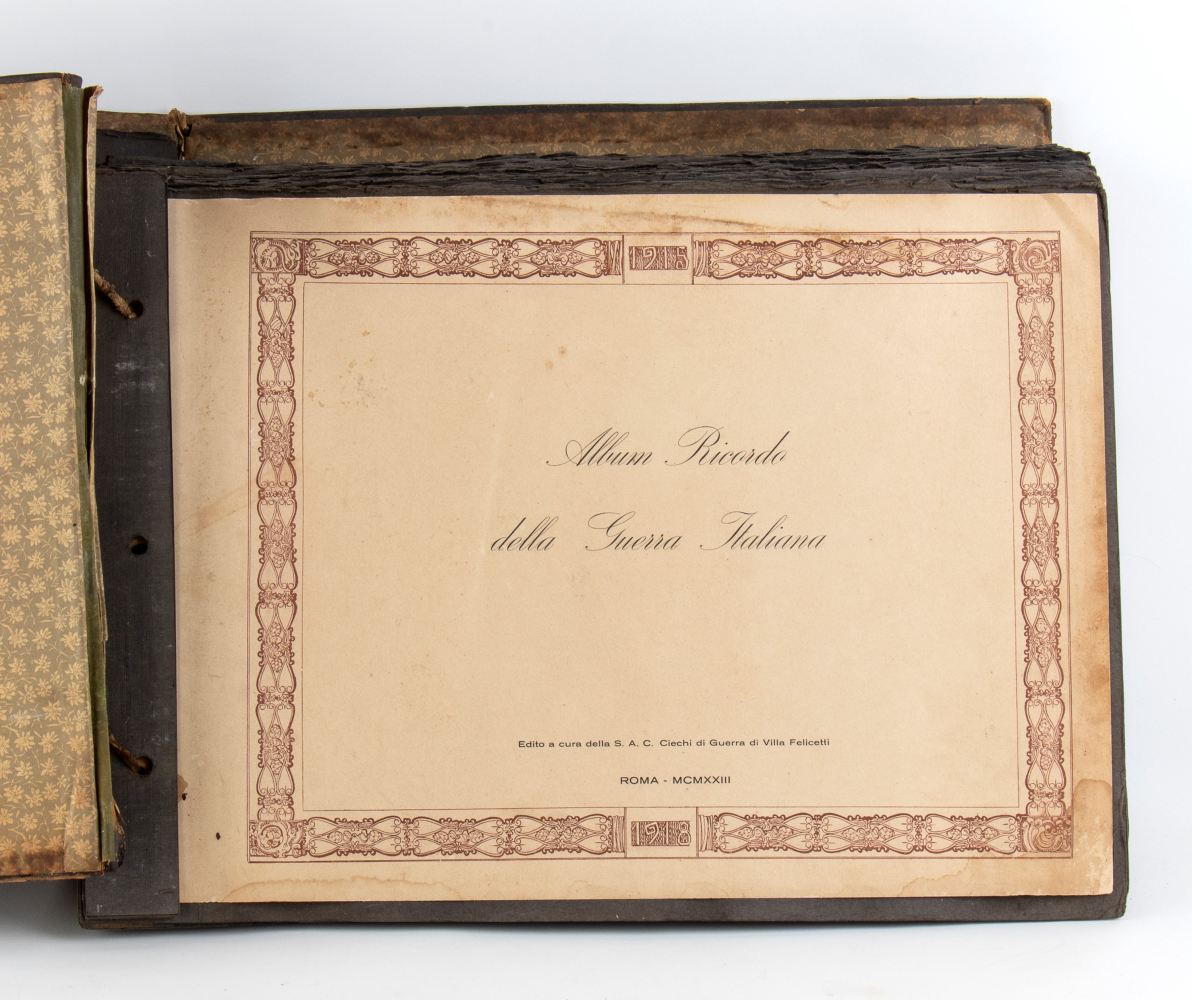 1915
Album Ricordo
della Guerra Italiana
Edito a cura della S. A. C. Ciechi di Guerra di Villa Felicetti
ROMA - MCMXXIII
1918